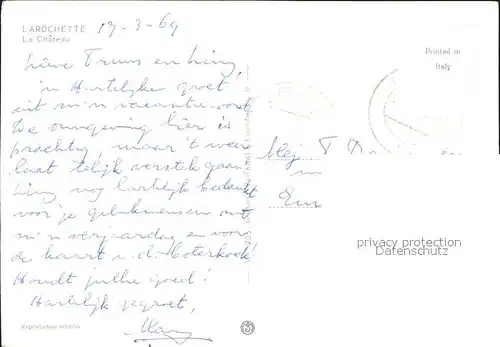 LAROCHETTE 19-3-69
Le Château
Printed in
Italy
Lieve Truus en Wing,
'n Hartelijke groet
uit m'n vacantie-oord.
De omgeving hier is
prachtig, maar 't weer
laat telijk verstek gaan
nog hartelijk bedankt
voor je gelukwensen met
m'n verjaardag en voor
de kaart u.d. boterhoek!
Houdt jullie goed!
Hartelijk gegroet,
Mary
Mej. T
in
privacy protection
Datenschutz
Reproduction interdite